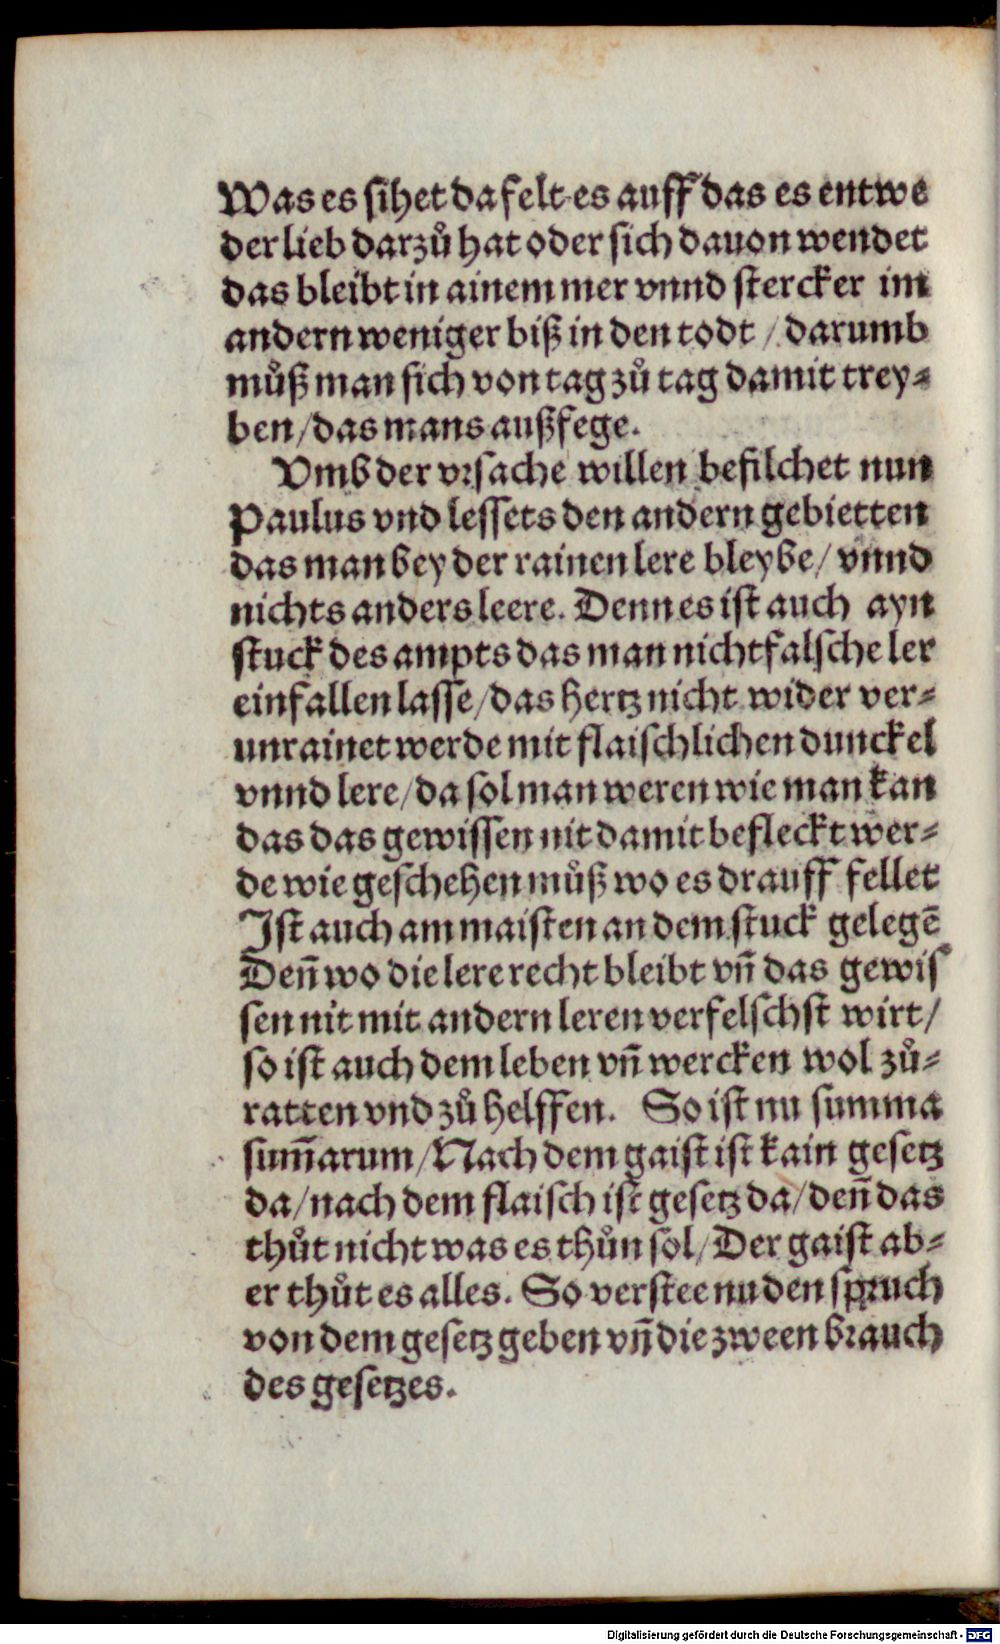 Was es sihet da felt es auff das es entwe
der lieb darzů hat oder sich dauon wendet
das bleibt in ainem mer vnnd stercker im
andern weniger biß in den todt / darumb
můß man sich von tag zů tag damit trey⸗
ben/das mans außfege.
Vmb der vrsache willen befilchet nun
Paulus vnd lessets den andern gebietten
das man bey der rainen lere bleybe/ vnnd
nichts anders leere. Denn es ist auch ayn
stuck des ampts das man nicht falsche ler
einfallen lasse/das hertz nicht wider ver⸗
unrainet werde mit flaischlichen dunckel
vnnd lere/da sol man weren wie man kan
das das gewissen nit damit befleckt wer⸗
de wie geschehen můß wo es drauff fellet
Ist auch am maisten an dem stuck gelegē
Deñ wo die lere recht bleibt vñ das gewis
sen nit mit andern leren verfelschst wirt/
so ist auch dem leben vñ wercken wol zů⸗
ratten vnd zů helffen. So ist nu summa
sum̄arum/Nach dem gaist ist kain gesetz
da/nach dem flaisch ist gesetz da/deñ das
thůt nicht was es thůn sol/Der gaist ab⸗
er thůt es alles. So verstee nu den spruch
von dem gesetz geben vñ die zween brauch
des gesetzes.
Digitalisierung gefördert durch die Deutsche Forschungsgemeinschaft - DFG